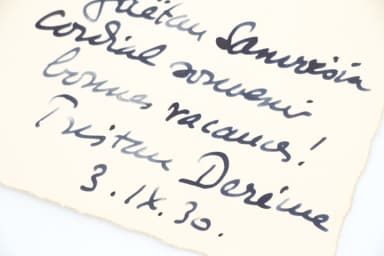 Gaëtan Sanvoisin
cordial souvenir
bonnes vacances!
Tristan Derème
3.IX.30.